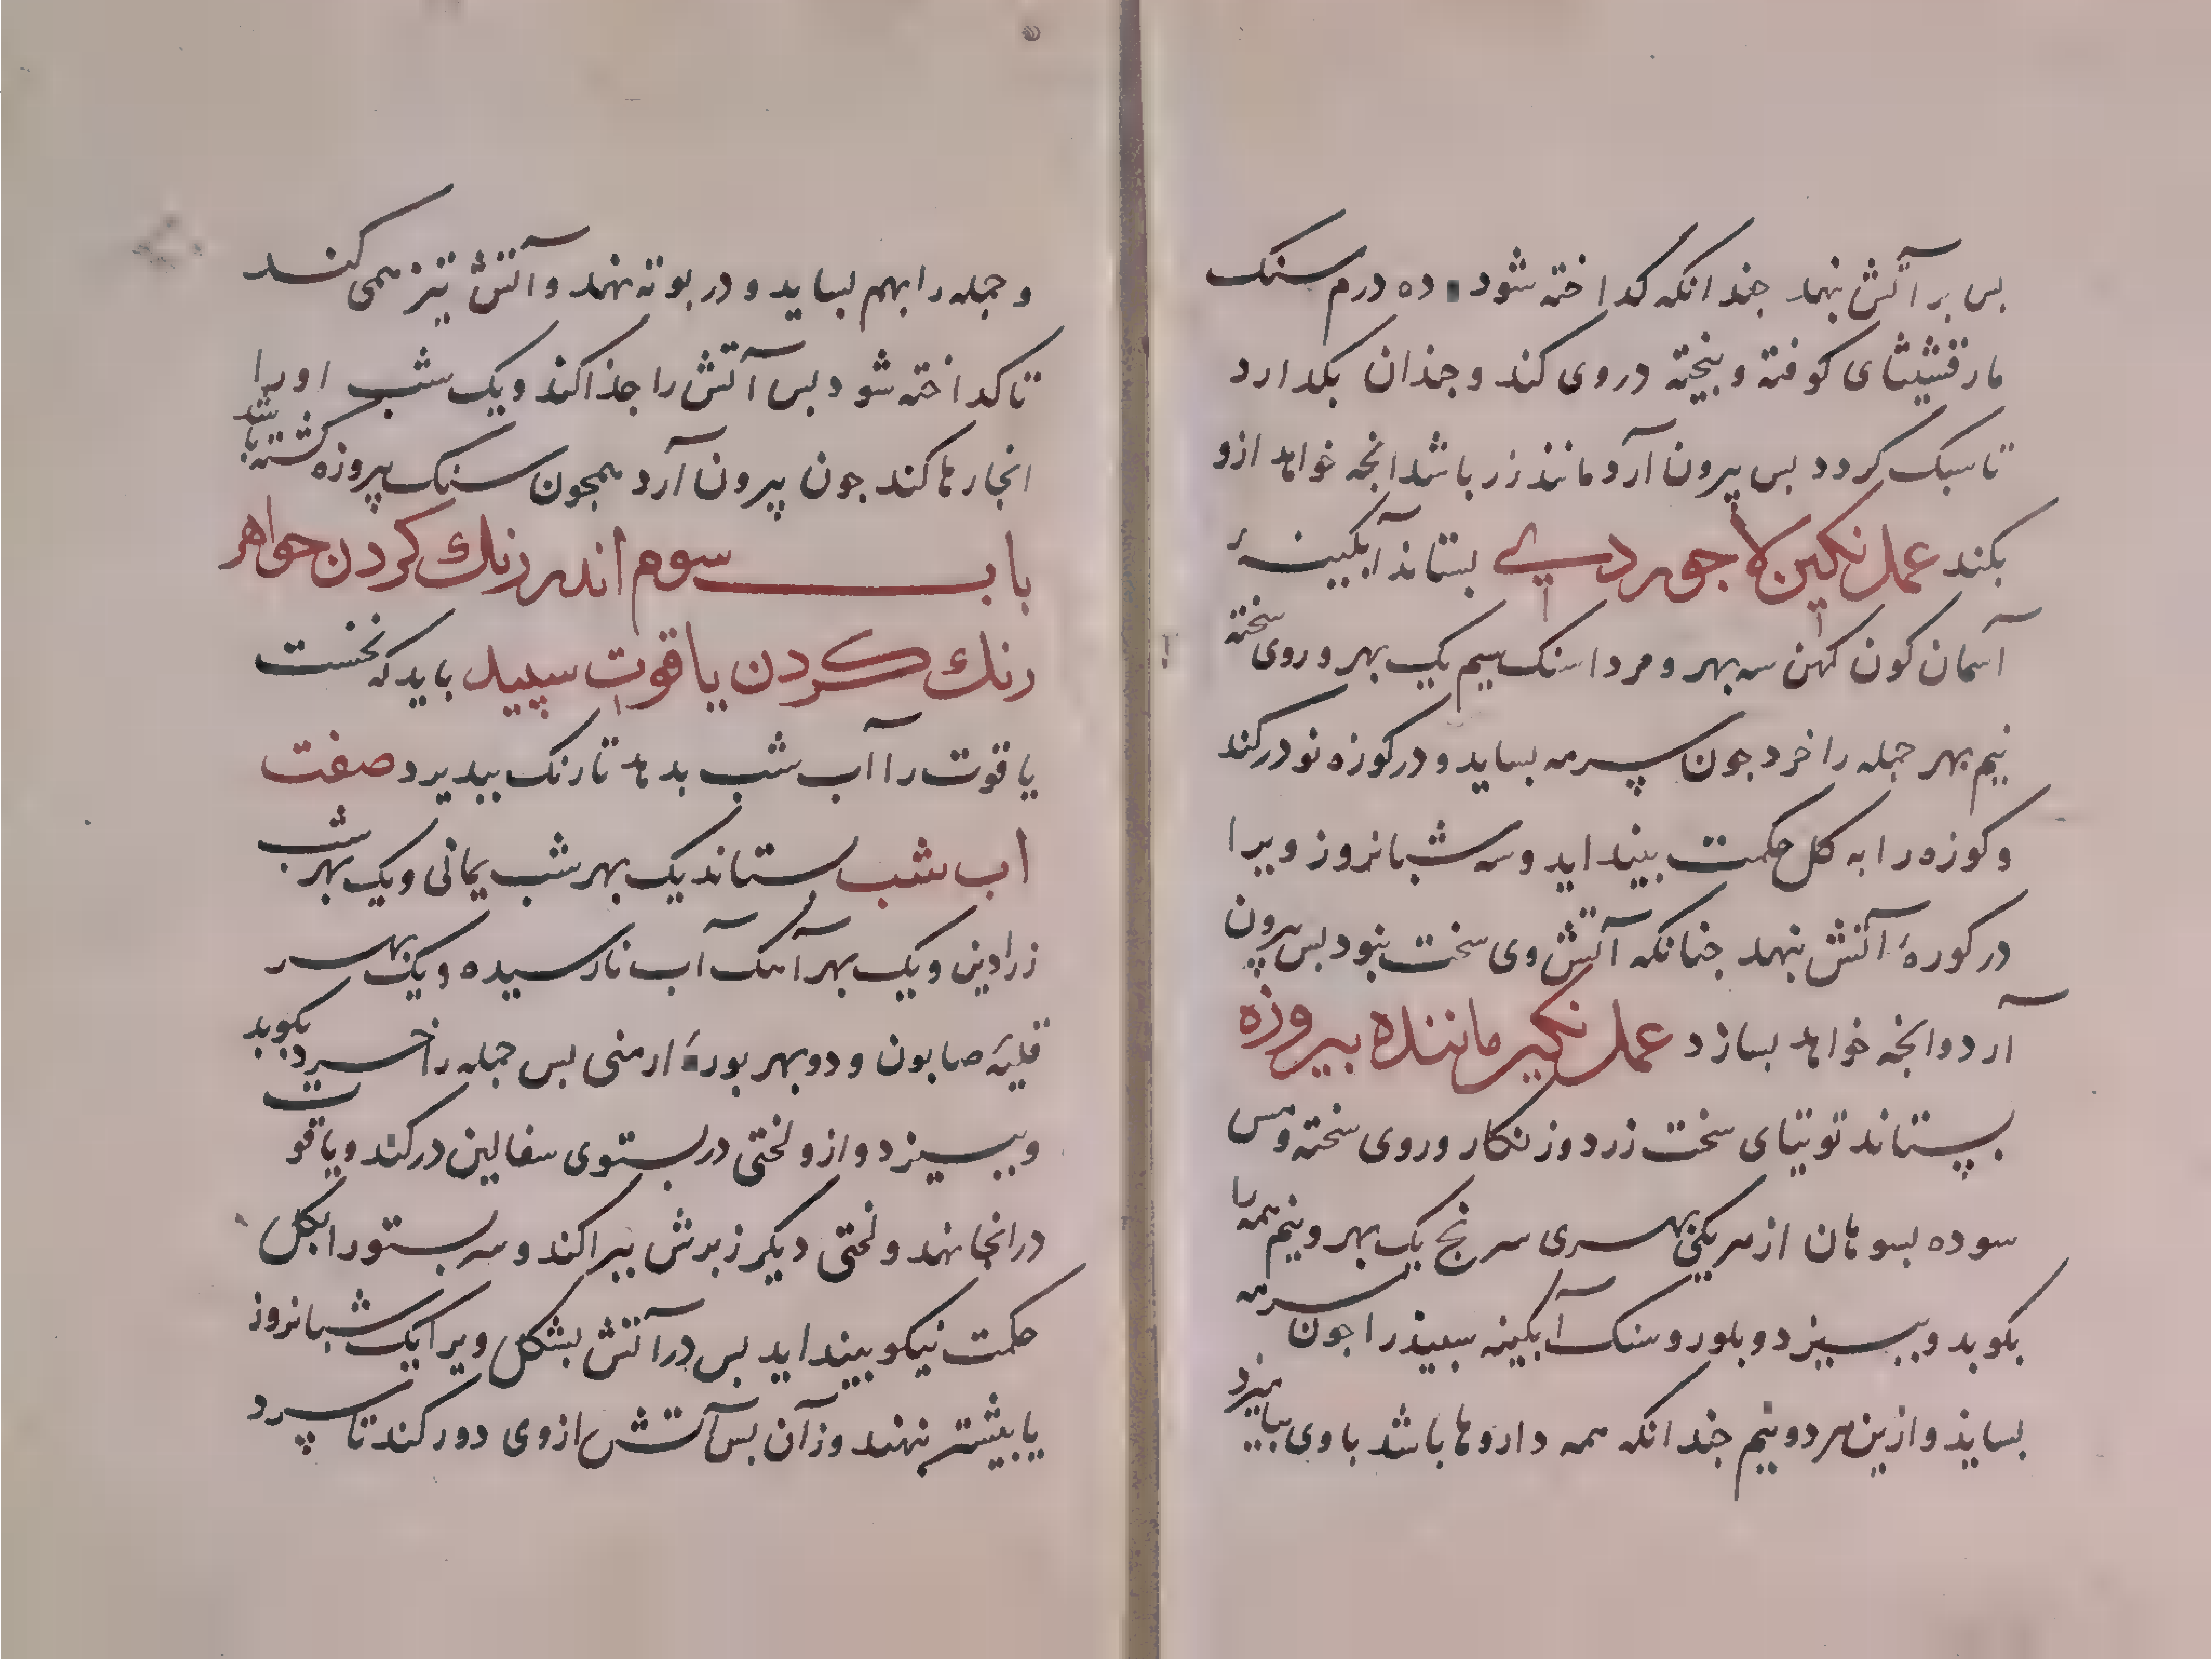 بس بر آتش نهد جندانکه کداخته شود ده درم سنک
مارقشیشای کوفته و بیخته دروی کند و جندان بکدارد
تا سبک کردد بس بیرون آرد مانند زر باشد انجه خواهد ازو
بکند عمل نکین لاجوردی بستاند آبکینهٔ
آسمان کون کهن سه بهر و مرداسنک سیم یک بهر و روی سخته
نیم بهر جمله را خرد جون سرمه بساید و در کوزه نو در کند
و کوزه را به کل حکمت بینداید و سه شبانروز ویرا
در کورهٔ آتش نهد جنانکه آتش وی سخت بنود بس بیرون
آرد و انجه خواهد بسازد عمل نکین ماننده بیروزه
بستاند توتیای سخت زرد و زنکار و روی سخته و مس
سوده بسوهان از هر یکی بهری سرنج یک بهر و نیم همه را
بکوبد و ببیزد و بلور و سنک آبکینه سبیذ را جون سرمه
بسایذ و ازین هر دو نیم جندانکه همه داروها باشد با وی بیامیزد
و جمله را بهم بساید و در بوته نهد و آتش تیز همی کند
تا کداخته شود بس آتش را جذا کند و یک شب اورا
انجا رها کند جون بیرون آرد همجون سنک بیروزه کشته باشد
باب سوم اندر رنک کردن جواهر
رنک کردن یاقوت سپید باید که نخست
یاقوت را آب شب بدهد تا رنک ببدیرد صفت
اب شب بستاند یک بهر شب یمانی و یک بهر شب
زرادین و یک بهر آهک آب نارسیده و یک بهر
قلیهٔ صابون و دو بهر بورهٔ ارمنی بس جمله را خرد بکوبد
و ببیزد و ازو لختی در بستوی سفالین در کند و یاقوت
در انجا نهد و لختی دیکر زبرش ببراکند و سر بستو را بکل
حکمت نیکو بینداید بس در آتش بشکل ویرا یک شبانروز
یا بیشتر بنهند وزآن بس آتش از وی دور کند تا سرد